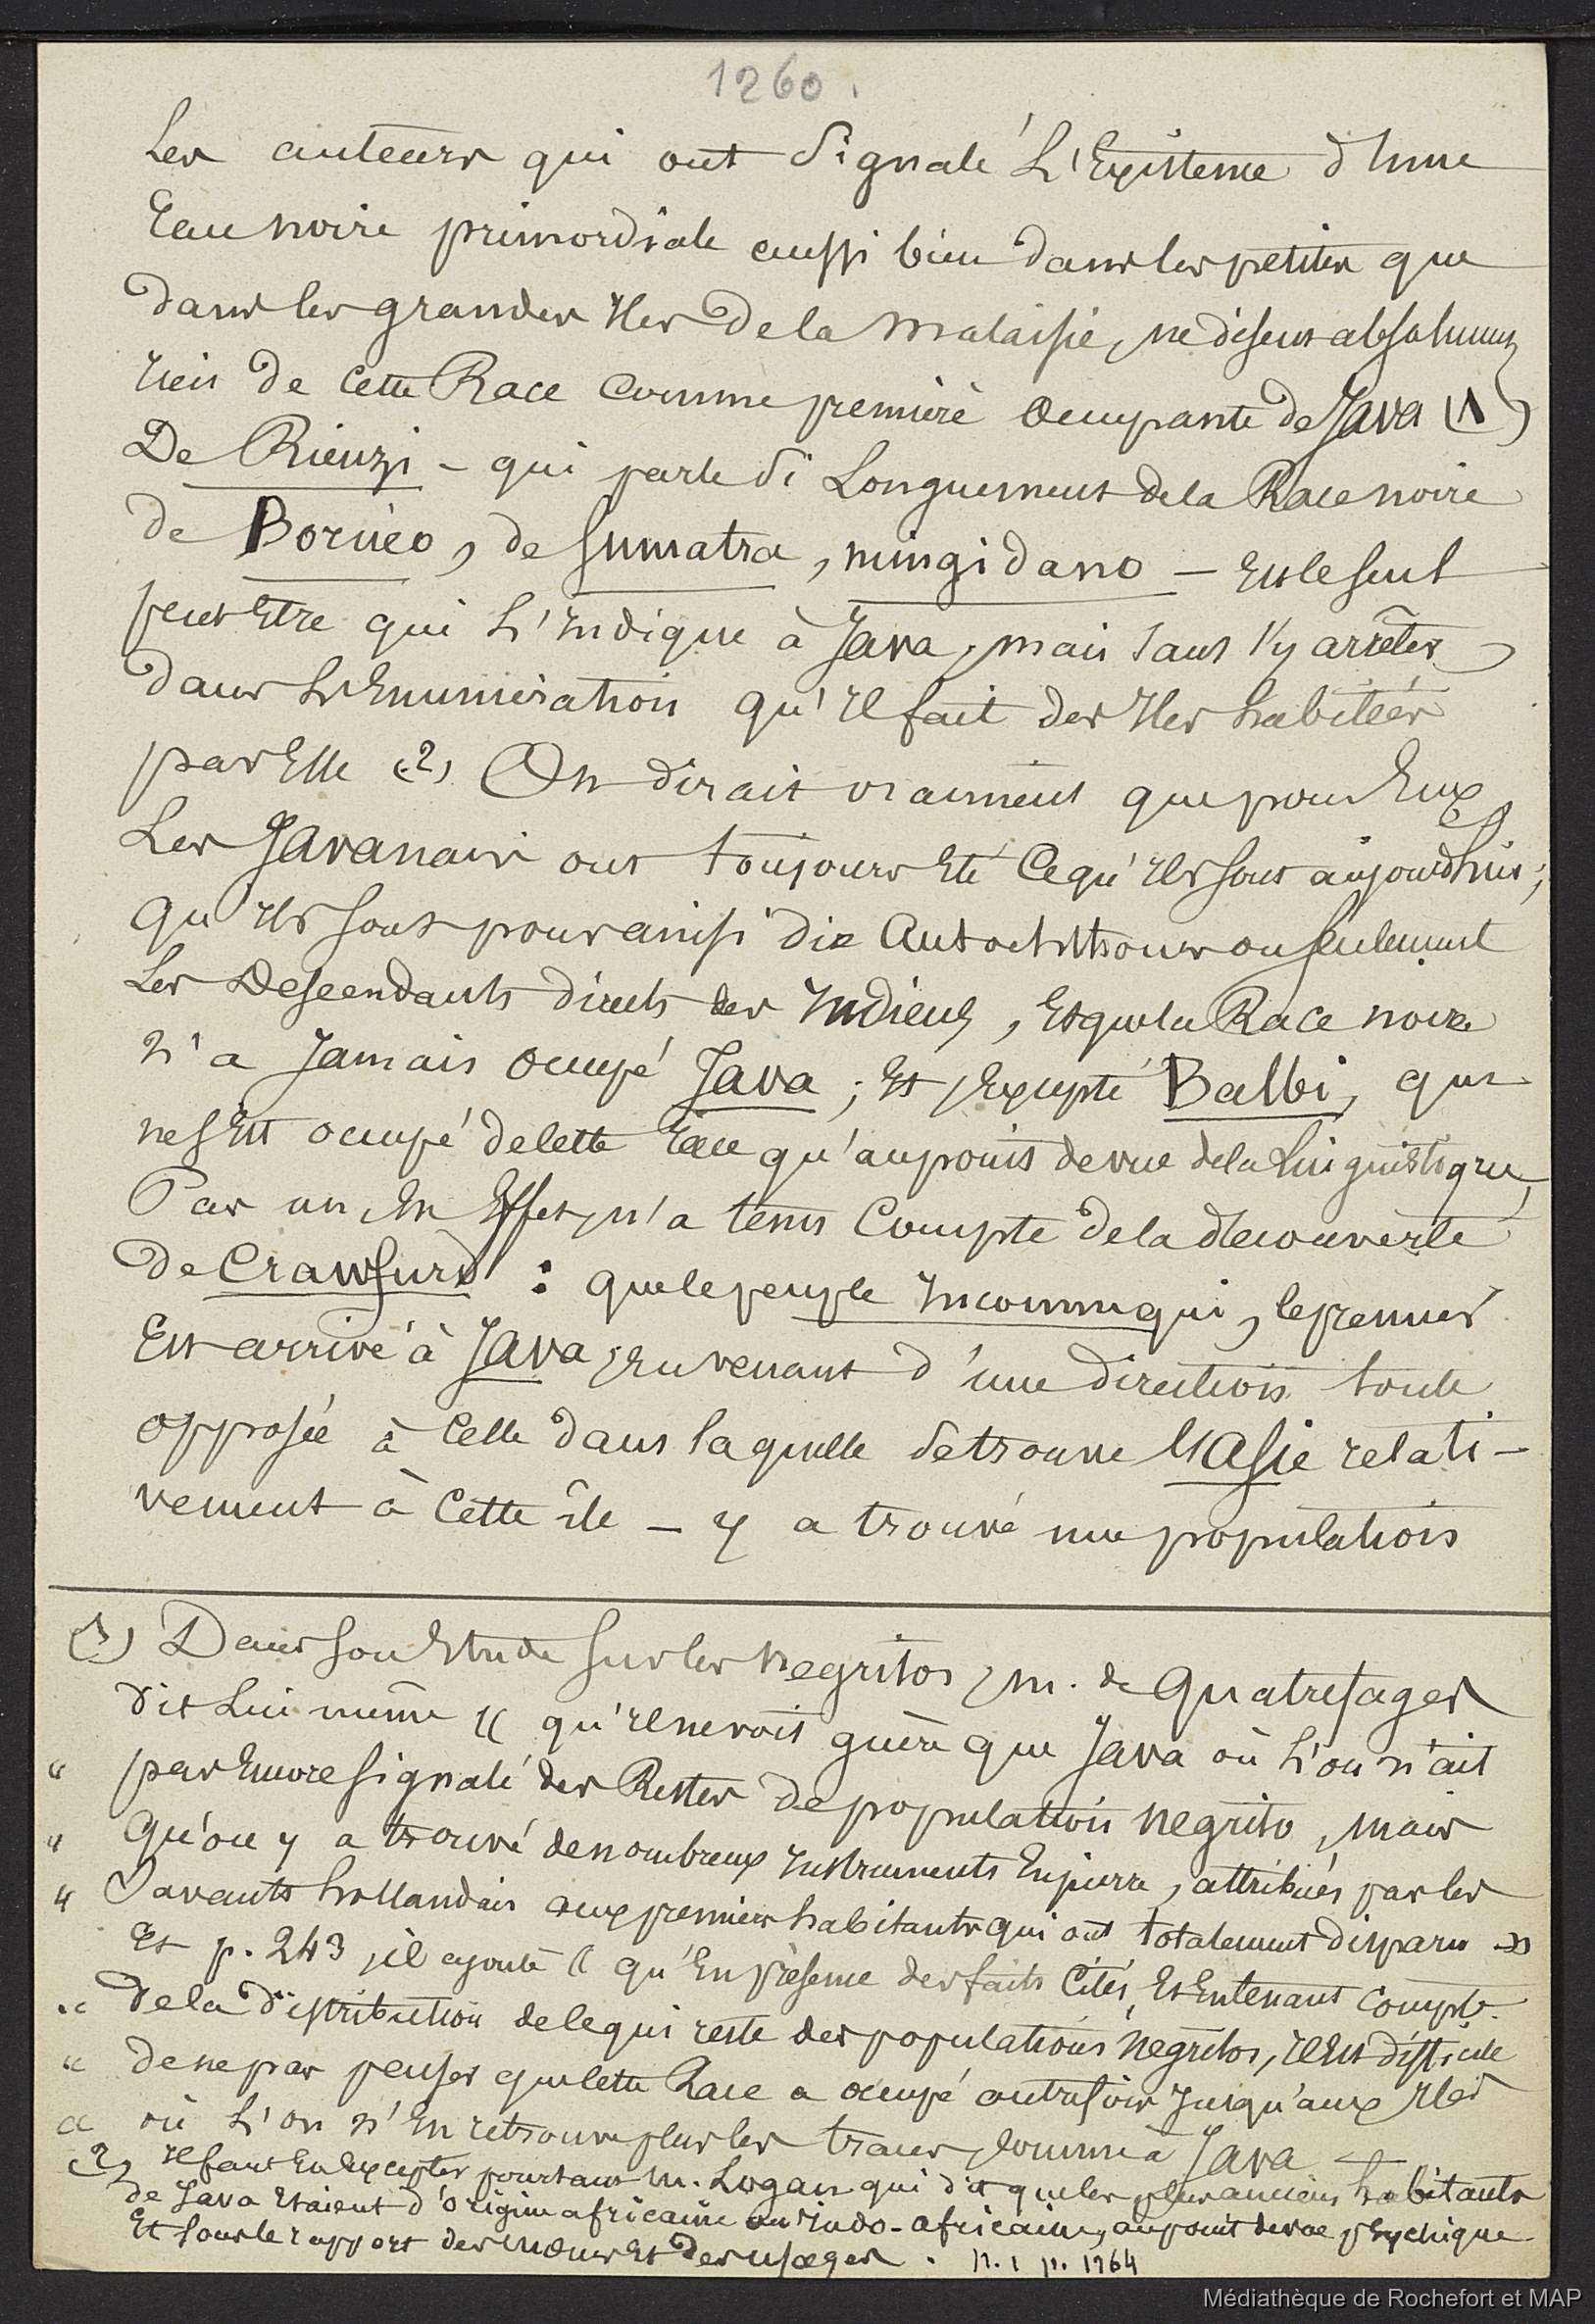 1260.
Les auteurs qui ont signalé L'Existence d'une
Race noire primordiale aussi bien dans les petites que
dans les grandes Iles de la Malaisie, ne disent absolument
rien de cette Race comme première occupante de Java (1)
De Rienzi - qui parle si Longuement de la Race noire
de Bornéo, de Sumatra, mingidano - Est le seul
peut Etre qui L'Indique à Java, mais sans s'y arrêter
dans L'Enumération qu'Il fait des Iles habitées
par Elle (2) On dirait vraiment que pour Eux
Les Javanais ont toujours Eté Ce qu'Ils sont aujourd'hui;
qu'Ils sont pour ainsi dire Autochthones ou seulement
Les Descendants directs des Indiens, Et que la Race noire
n'a Jamais occupé Java; Et, Excepté Balbi, qui
ne s'Est occupé de cette Race qu'au point de vue de la Linguistique,
Pas un, En Effet, n'a tenu Compte de la découverte
de Crawfurd : que le peuple Inconnu qui, le premier
Est arrivé à Java, En venant d'une direction toute
opposée à Celle dans laquelle se trouve l'Asie relati-
vement à Cette île - y a trouvé une population
(1) Dans son Etude sur les Negritos, M. de Quatrefages
dit Lui même « qu'Il ne voit guère que Java où L'on n'ait
" pas Encore signalé des Restes de population Negrito, mais
" qu'on y a trouvé de nombreux Instruments En pierre, attribués par les
" Savants hollandais aux premiers habitants qui ont totalement disparu »
Et p. 243, il ajoute « qu'En présence des faits Cités, Et En tenant compte
" de la distribution de ce qui reste des populations Negritos, Il Est difficile
" de ne pas penser que cette Race a occupé autrefois Jusqu'aux Iles
" où L'on n'En retrouve plus les traces, comme à Java
(2) Il faut En Excepter pourtant M. Logan qui dit que les plus anciens habitants
de Java Etaient d'origine africaine ou Indo-africaine, au point de vue physique
Et sous le rapport des mœurs Et des usages. n. 1 p. 1264
Médiathèque de Rochefort et MAP